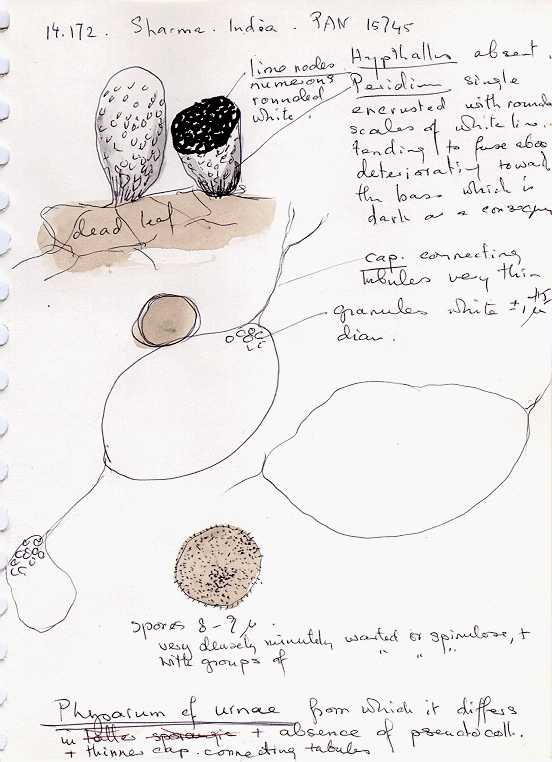 14.172. Sharma. India. PAN 15745
lime nodes
numerous
rounded
white.
Hypothallus absent.
Peridium single
encrusted with
scales of white
tending to fuse
deteriorating
the base which is
dark as a
dead leaf
cap. connecting
tubules very thin
granules white ±1
diam.
spores 8-9 µ.
very densely minutely warted or spinulose, +
with groups of " " "
Physarum cf urnae from which it differs
in + absence of pseudocoll.
+ thinner cap. connecting tubules